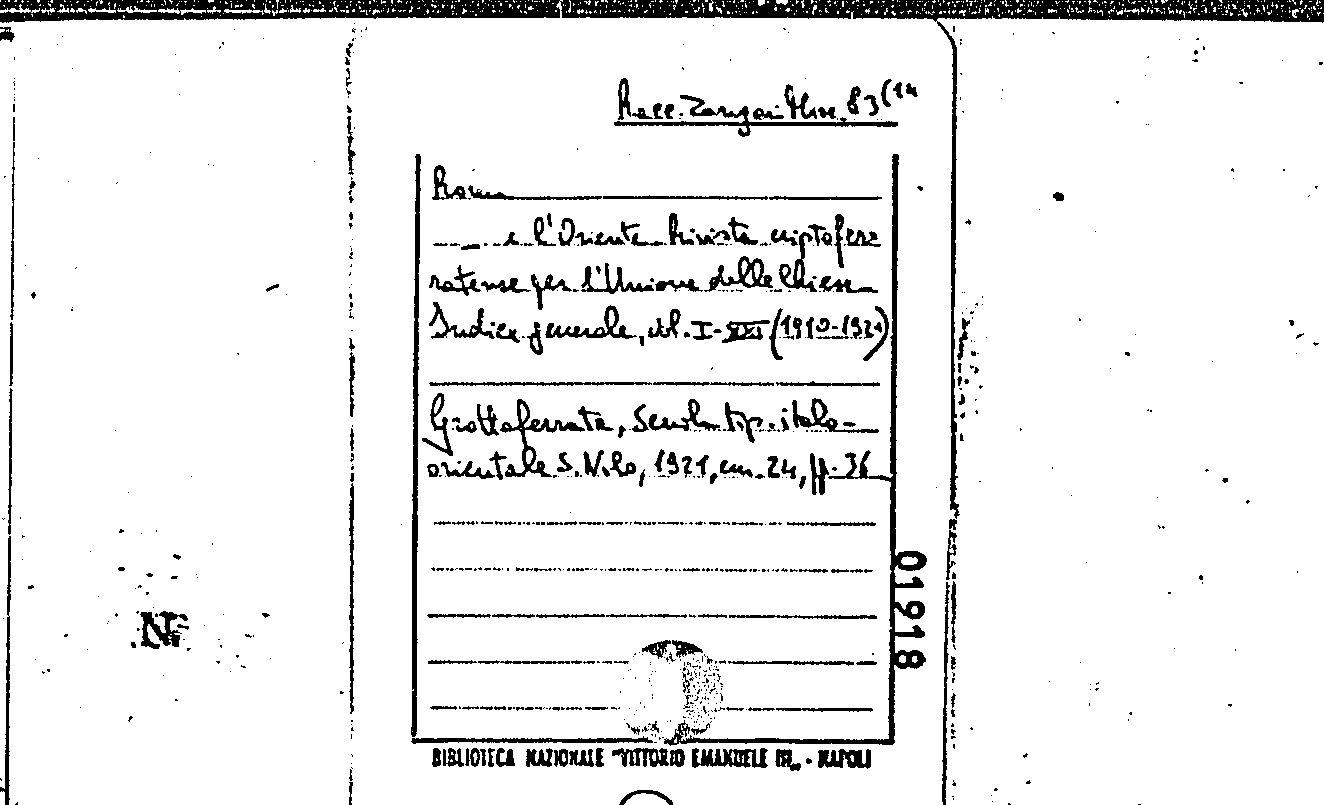 Racc. Zangari Misc. 83(14
Roma
— e l'Oriente Rivista criptofer=
ratense per l'Unione delle Chiese
Indice generale, vol. I-XXI (1910-1921)
Grottaferrata, Scuola tip. italo-
orientale S. Nilo, 1921, cm. 24, pp. 36
01918
N
BIBLIOTECA NAZIONALE "VITTORIO EMANUELE III„ - NAPOLI